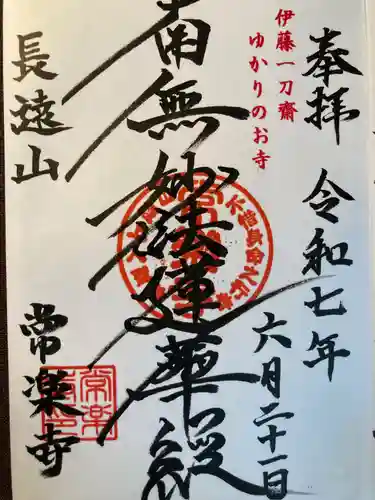 伊藤一刀齋
ゆかりのお寺
奉拝 令和七年
六月二十一日
南無妙法蓮華経
長遠山
常楽寺